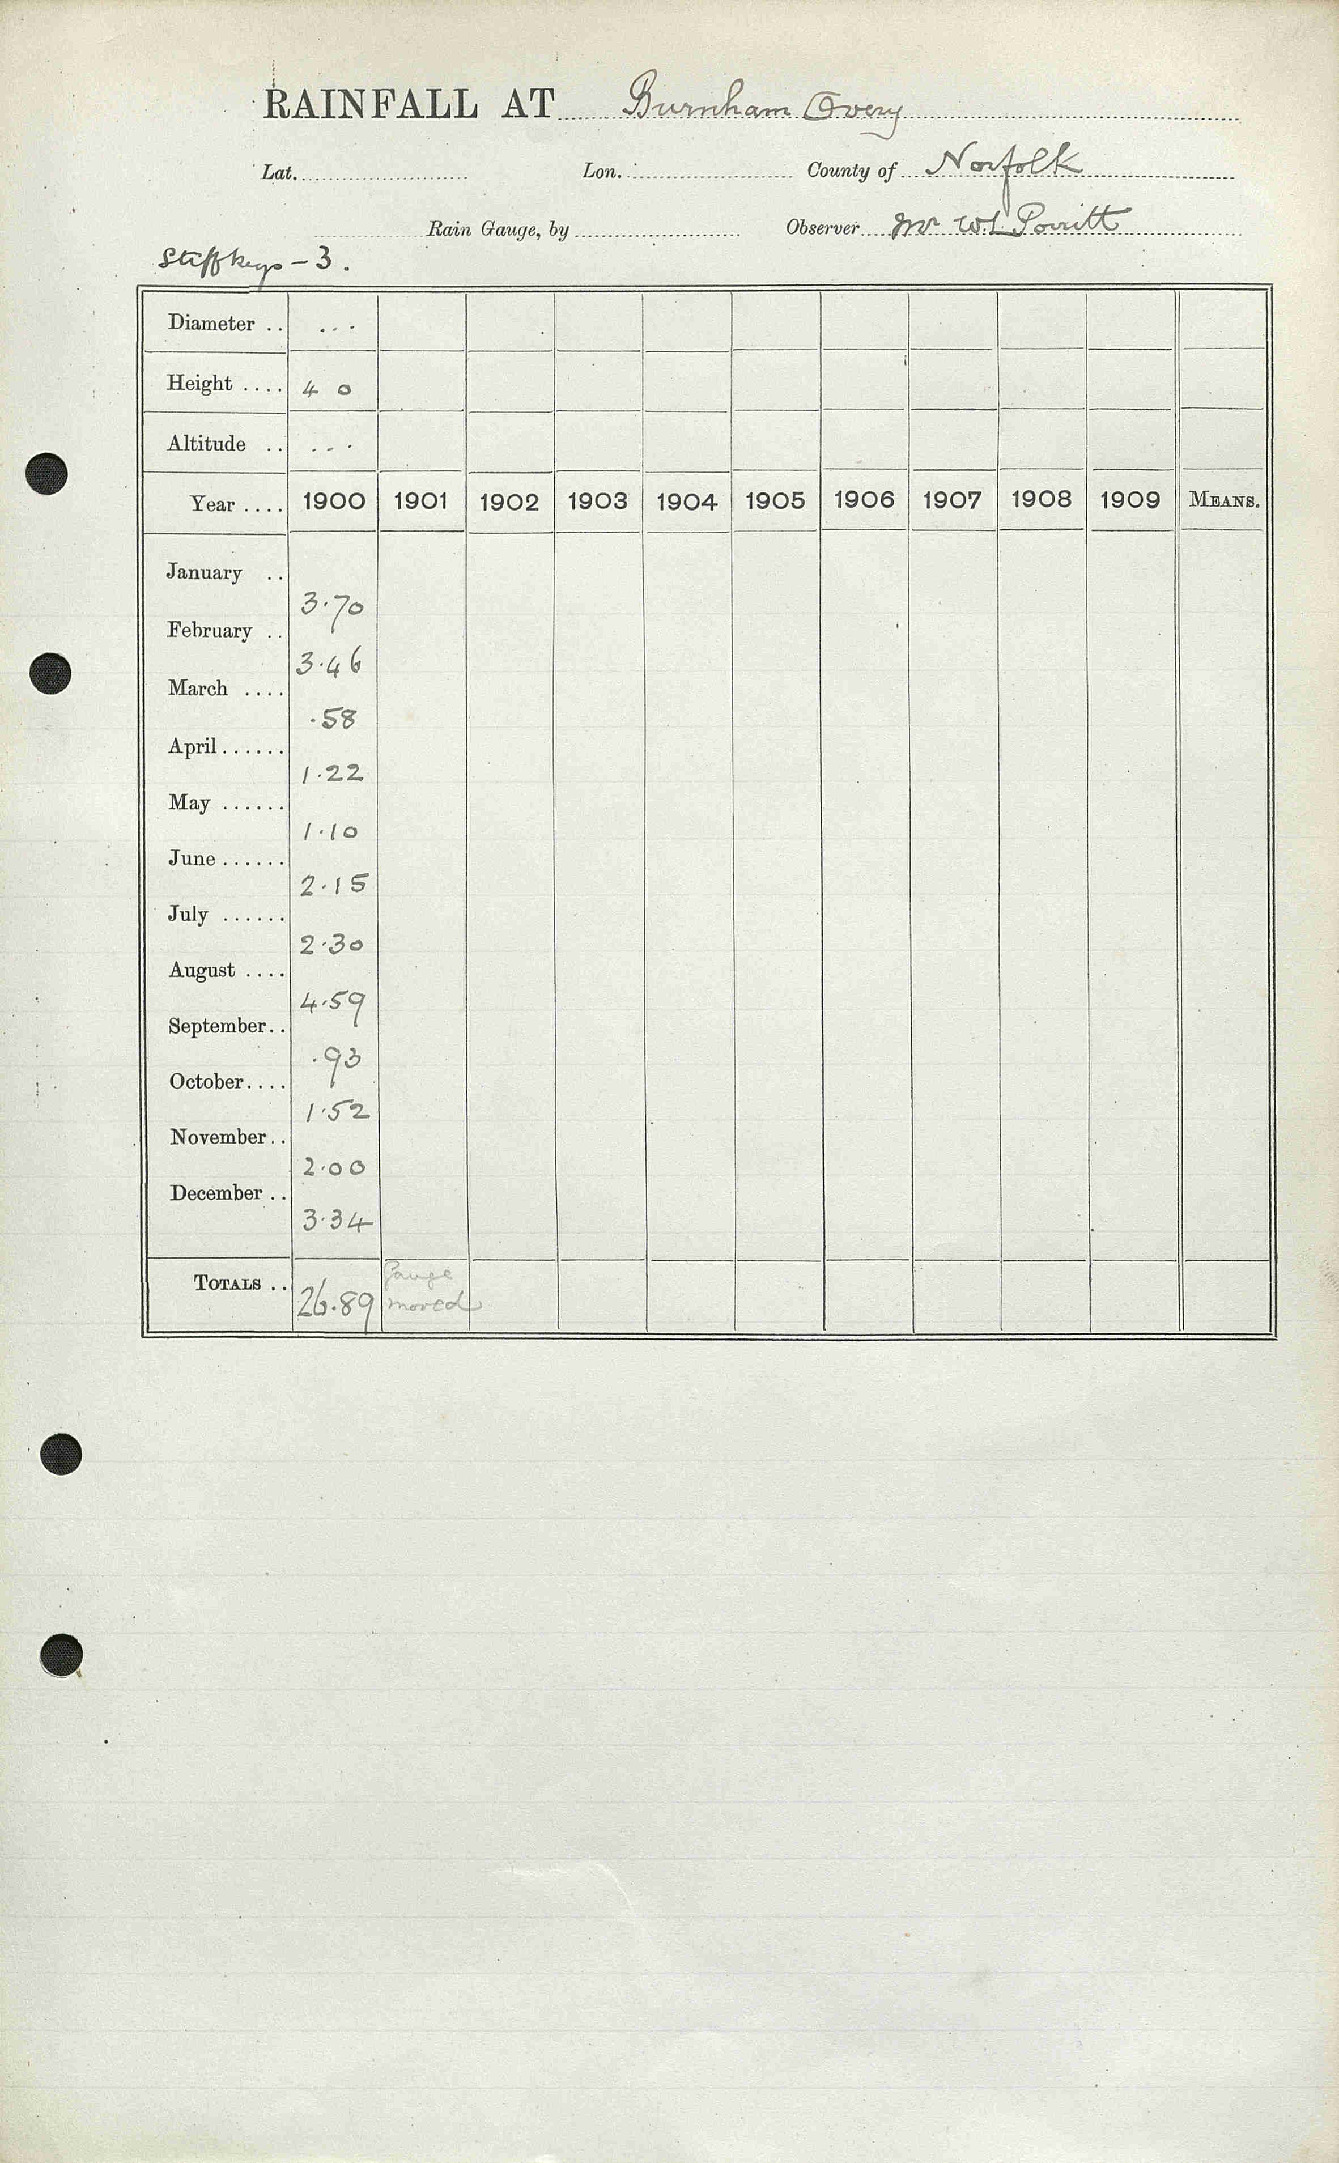 RAINFALL AT Burnham Overy
Lat. Lon. County of Norfolk
Rain Gauge, by Observer Mr W.L Porritt
Stiffkeys - 3.
Diameter .. ...
Height .... 4 0
Altitude .. ...
Year .... 1900 1901 1902 1903 1904 1905 1906 1907 1908 1909 MEANS.
January ..
3.70
February ..
3.46
March ....
.58
April ......
1.22
May ......
1.10
June ......
2.15
July ......
2.30
August ....
4.59
September ..
.93
October ....
1.52
November ..
2.00
December ..
3.34
TOTALS .. 26.89 Gauge
moved